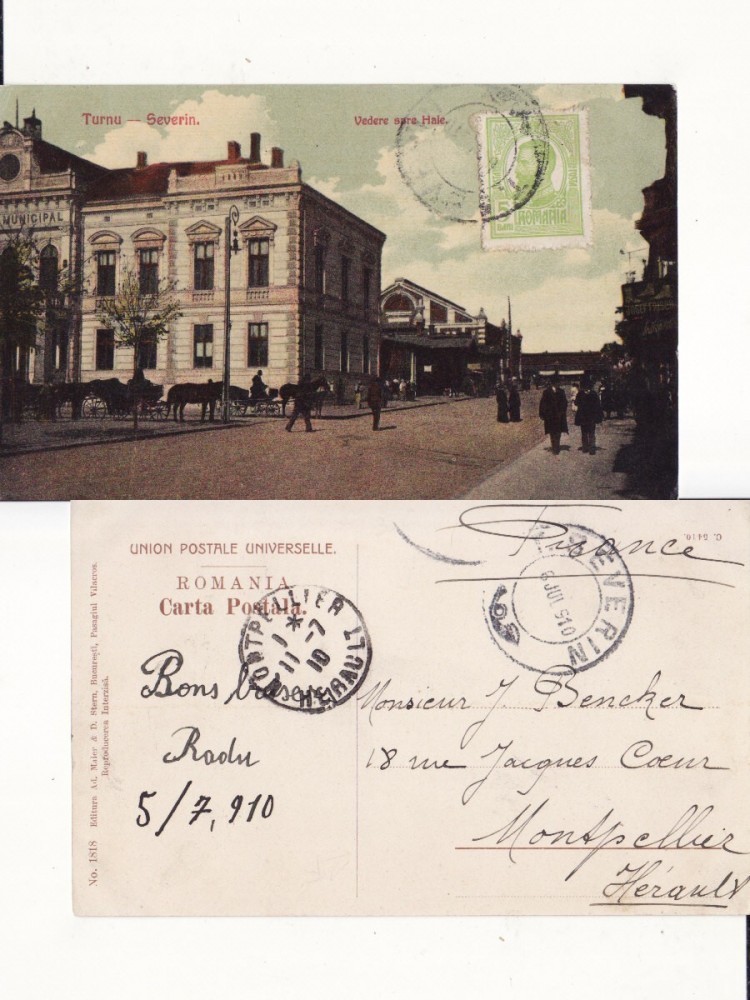 Turnu — Severin.
Vedere spre Hale.
MUNICIPAL
5 BANI
ROMANIA
UNION POSTALE UNIVERSELLE.
ROMANIA
Carta Postala.
No. 1818 Editura Ad. Maier & D. Stern, București, Pasagiul Vilacros.
Reproducerea Interzisă.
C. 5410.
France
SEVERIN
6 JUL 910
MONTPELLIER
1 *
11 -7
10
HERAULT
Bons baisers
Radu
5/7,910
Monsieur J. Bencker
18 rue Jacques Cœur
Montpellier
Hérault